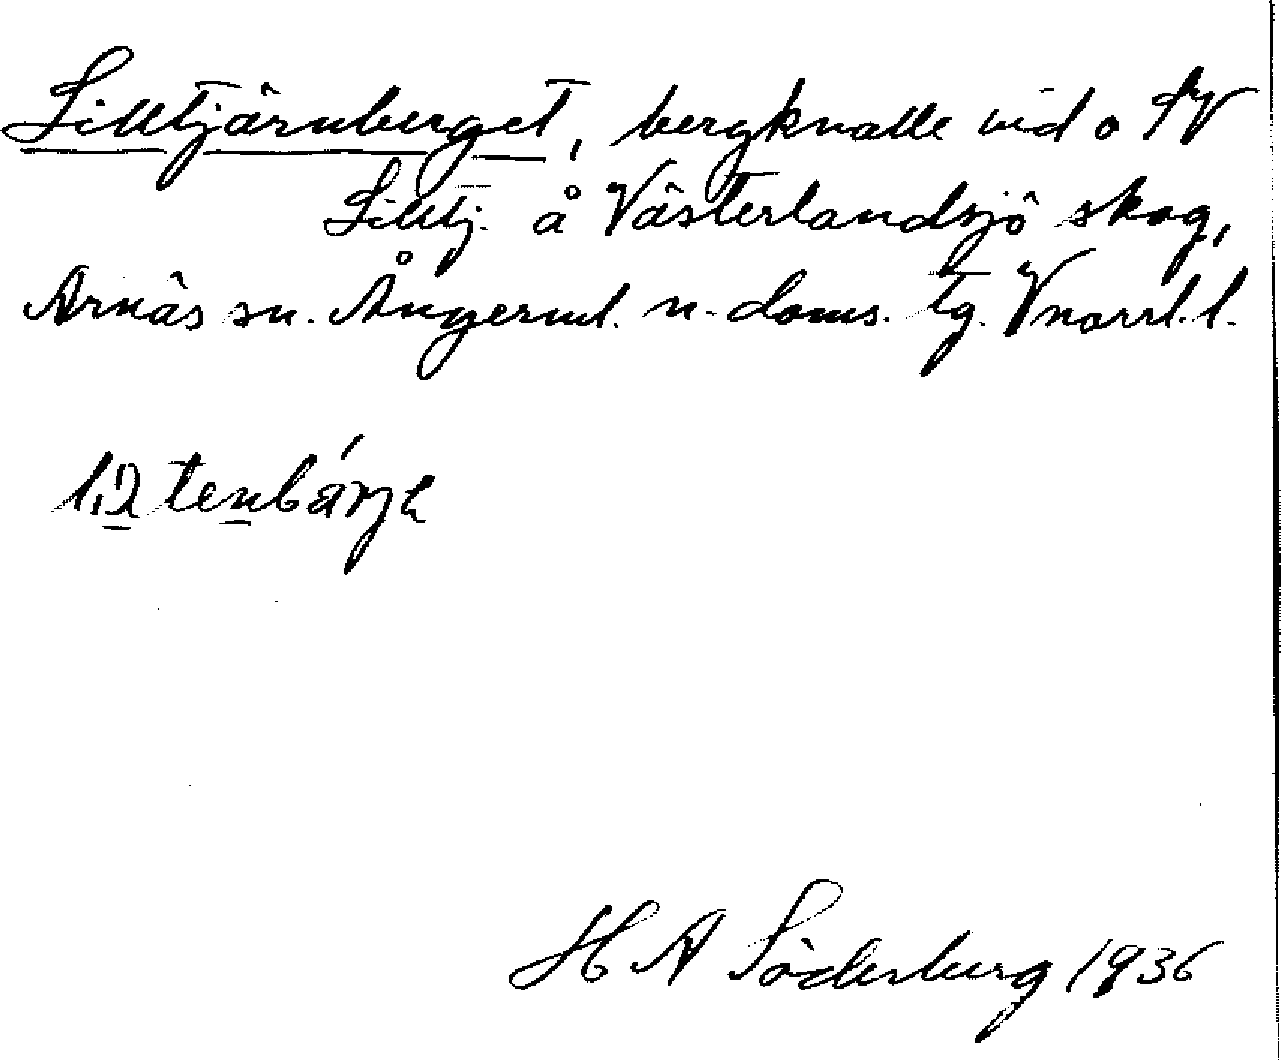 Lilltjärnberget, bergknalle vid o SV
Lilltj. å Västerlandsjö skog,
Arnäs sn. Ångerml. n. doms. tg. Vnorrl. l.
H A Söderberg 1936